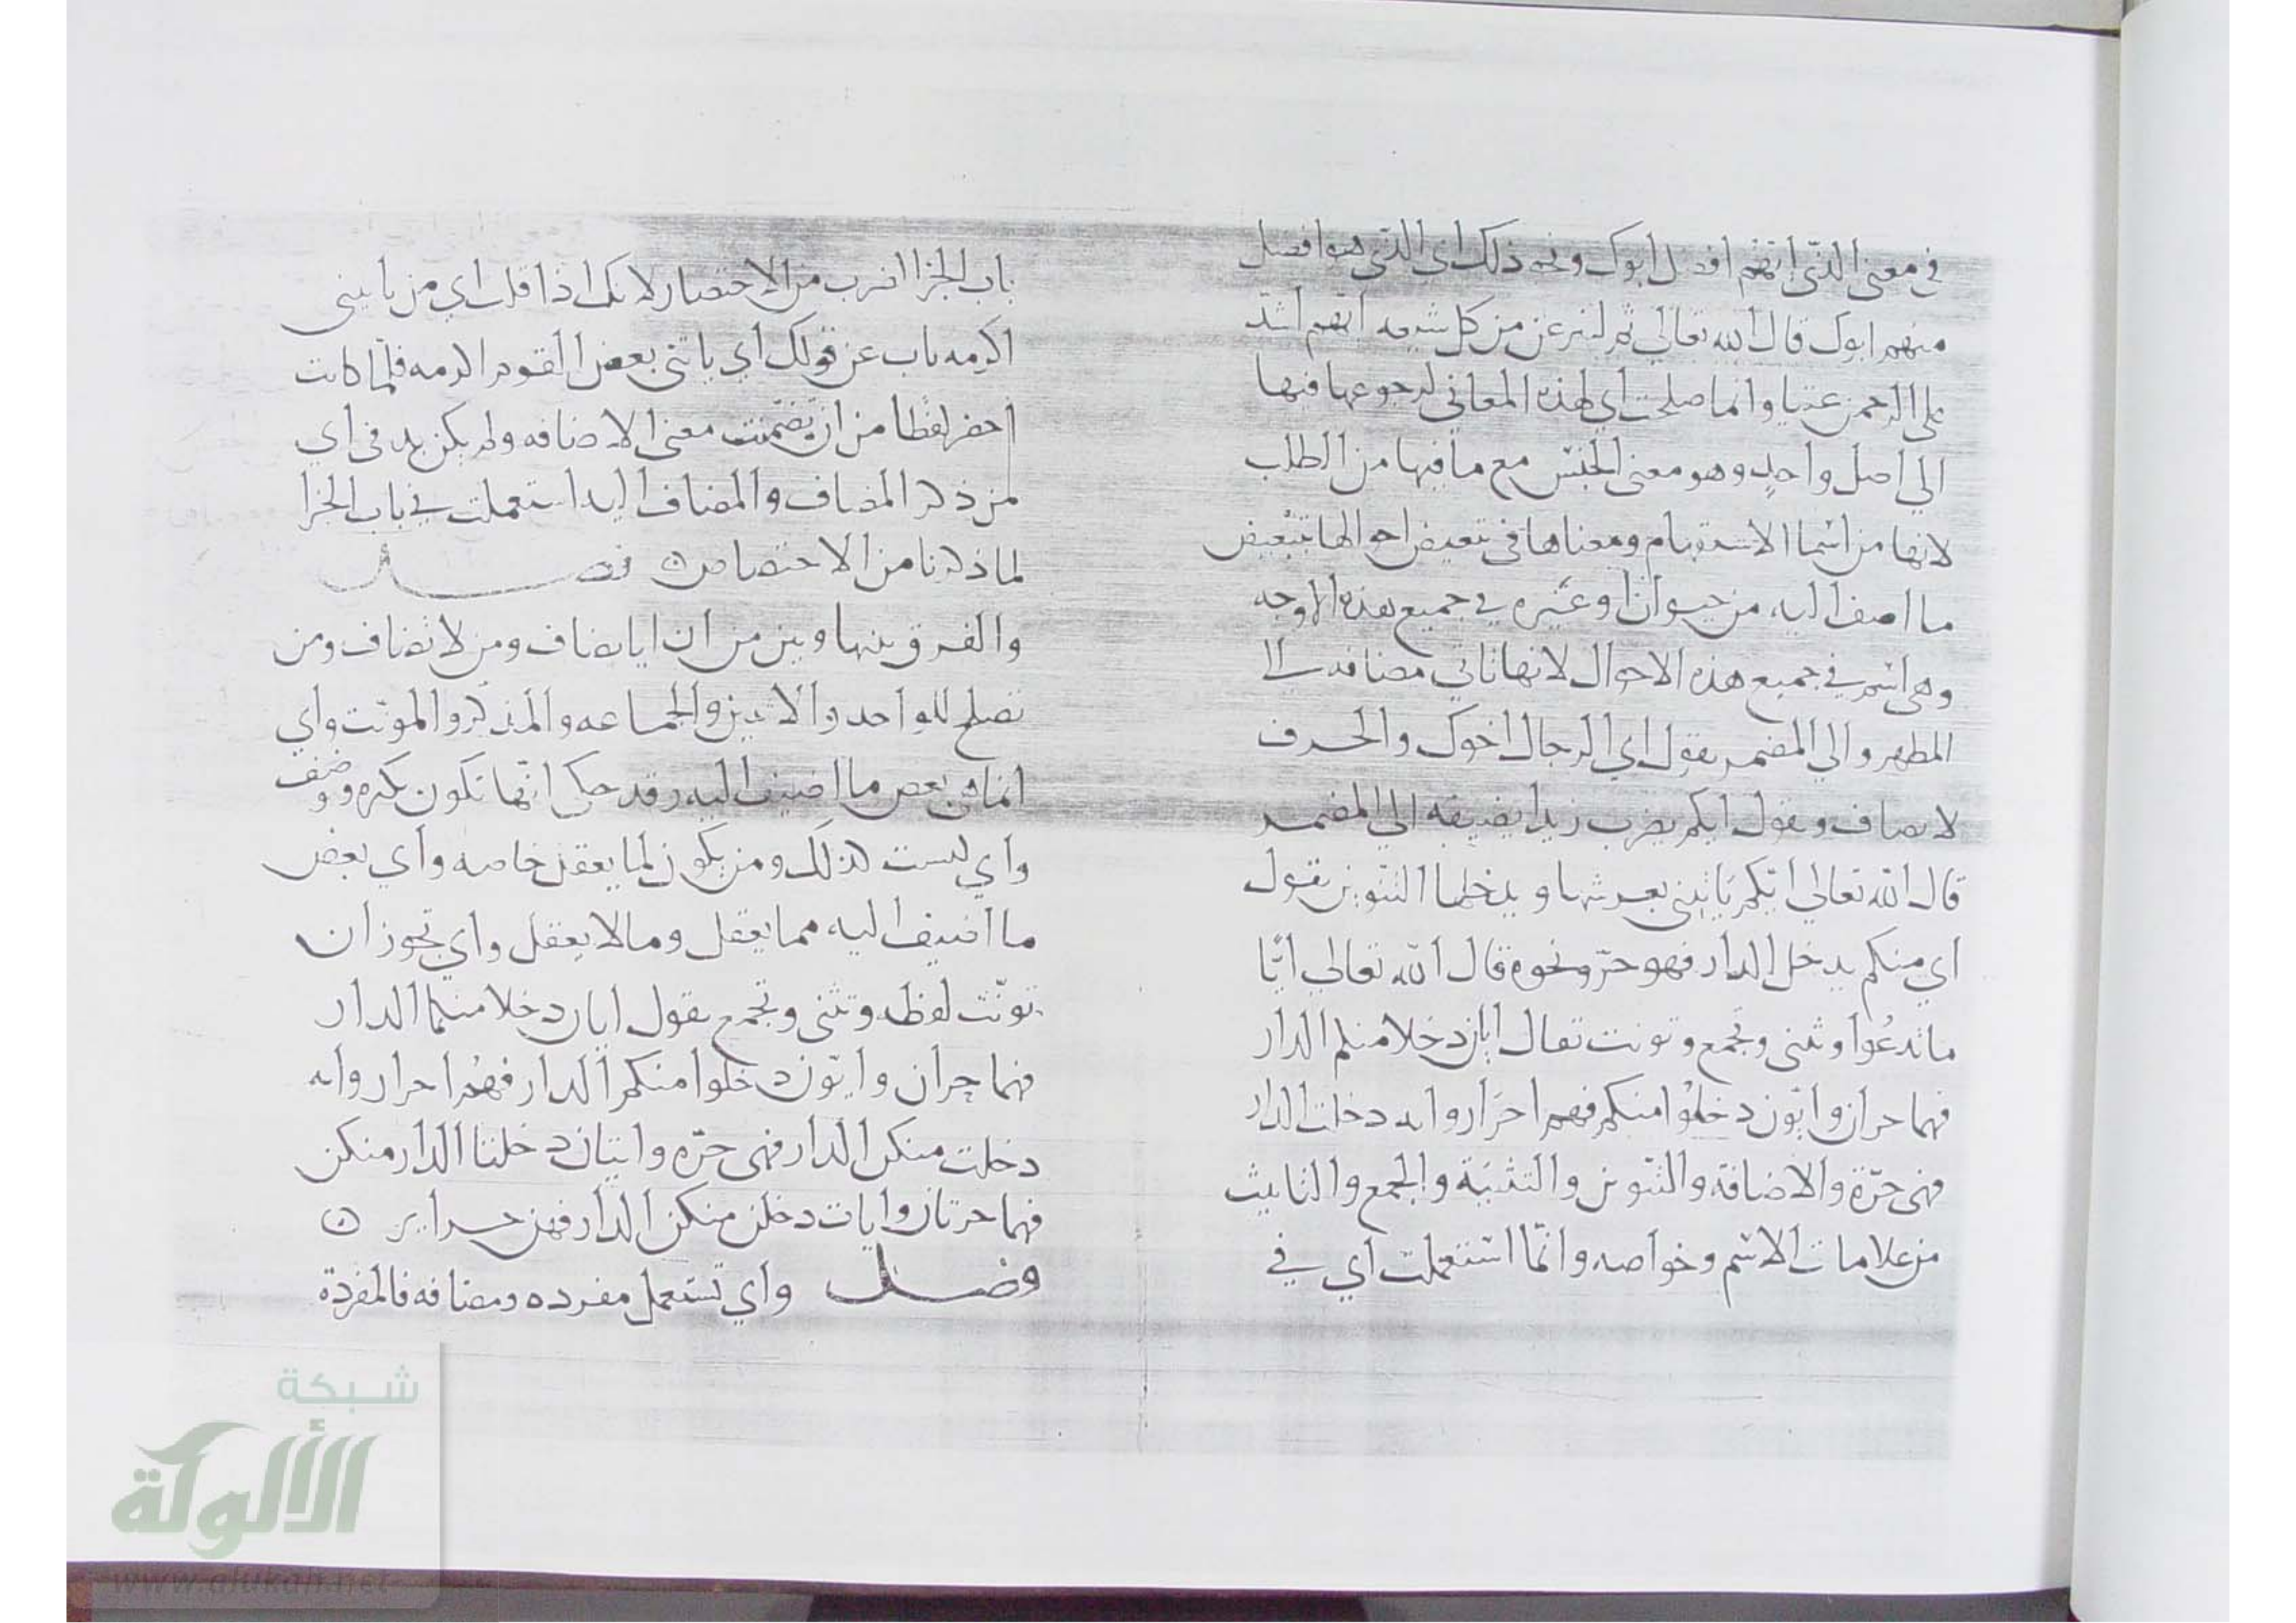 في معنى الذي ايهم افضل ابوك ونحو ذلك اي الذي هو افضل
منهم ابوك قال الله تعالى ثم لننزعن من كل شيعه ايهم اشد
على الرحمن عتيا وانما صلحت اي لهذه المعاني لرجوعها فيها
الي اصل واحدٍ وهو معنى الجنس مع ما فيها من الطلب
لانها من اسما الاستفهام ومعناها في تبعيض احوالها تبعيض
ما اضيف اليه من حيوان او غيره في جميع هذه الاوجه
وهي اسم في جميع هذه الاحوال لانها تاتي مضافه الى
المظهر والي المضمر يقول اي الرجال اخوك والحرف
لا يضاف ويقول ايكم يضرب زيدا يضيفه الي المضمر
قال الله تعالي ايّكم يَاتيني بعرشها ويدخلها التنوين يقول
اي منكم يدخل الدار فهو حرّ ونحوه قال الله تعالي ايًّا
ما تدعُوا وتثنى وتجمع وتونث تقال ايان دخلا منكم الدار
فهما حران وايّون دخلوُا منكم فهم احرَار وايه دخلت الدار
فهى حرّة والاضافة والتنوين والتثنية والجمع والتانيث
من علامات الاسم وخواصه وانّما استعملت اي في
باب الجزا لضرب من الاختصار لانك اذا قلت اي من ياتيني
اكرمه ناب عن قولك اي ياتني بعض القوم اكرمه فلمّا كانت
احصر لفظًا من ان تضمّنت معنى الاضافه ولم يكن بد في اي
من ذكر المضاف والمضاف اليه استعملت في باب الجزا
لما ذكرنا من الاختصاص ⊙ فصل
والفرق بينها وبين من ان ايا يضاف ومن لا تضاف ومن
تصلح للواحد والاثنين والجماعه والمذكر والمونّث واي
انما هي بعض ما اضيف اليه وقد حكى انها تكون نكره ووصف
واي ليست كذلك ومن يكون لما يعقل خاصه واي بعض
ما اضيف اليه مما يعقل وما لا يعقل واي تجوز ان
تونّث لفظه وتثنى وتجمع يقول ايان دخلا منكما الدار
فهما حران وايّون دخلوا منكم الدار فهُم احرار وايه
دخلت منكن الدار فهى حرّه وايتان دخلتا الدار منكن
فهما حرتان وايات دخلن منكن الدار فهن حراير ⊙
فصل واي تستعمل مفرده ومضافه فالمفردة
شبكة
الألوكة
www.alukah.net